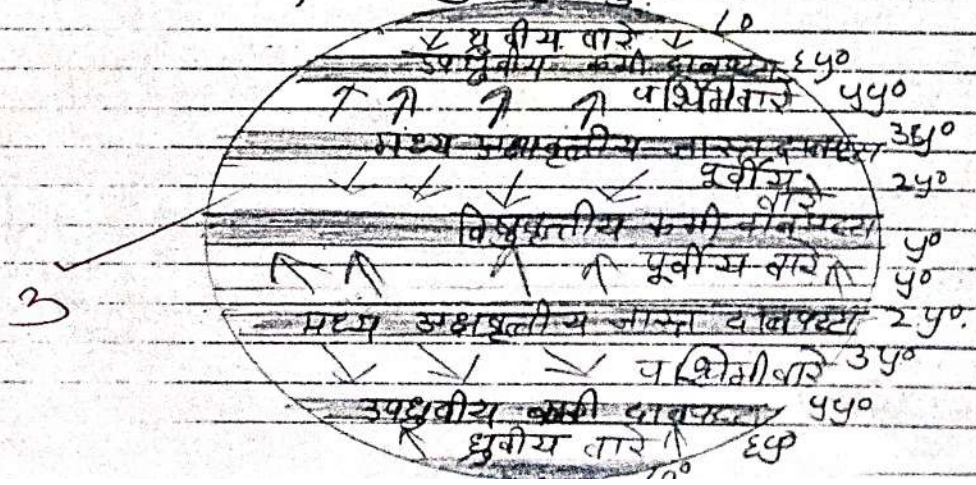 ८०
↓ ध्रुवीय वारे ↓
उपध्रुवीय कमी दाबपट्टा ६५०
पश्चिमीवारे ५५०
मध्य अक्षवृत्तीय जास्त दाबपट्टा ३५०
पूर्वीय २५०
वारे
विषुवृत्तीय कमी दाबपट्टा
५०
पूर्वीय वारे ५०
3
मध्य अक्षवृत्तीय जास्त दाबपट्टा २५०
पश्चिमीवारे ३५०
उपध्रुवीय कमी दाबपट्टा ५५०
ध्रुवीय वारे ६५०